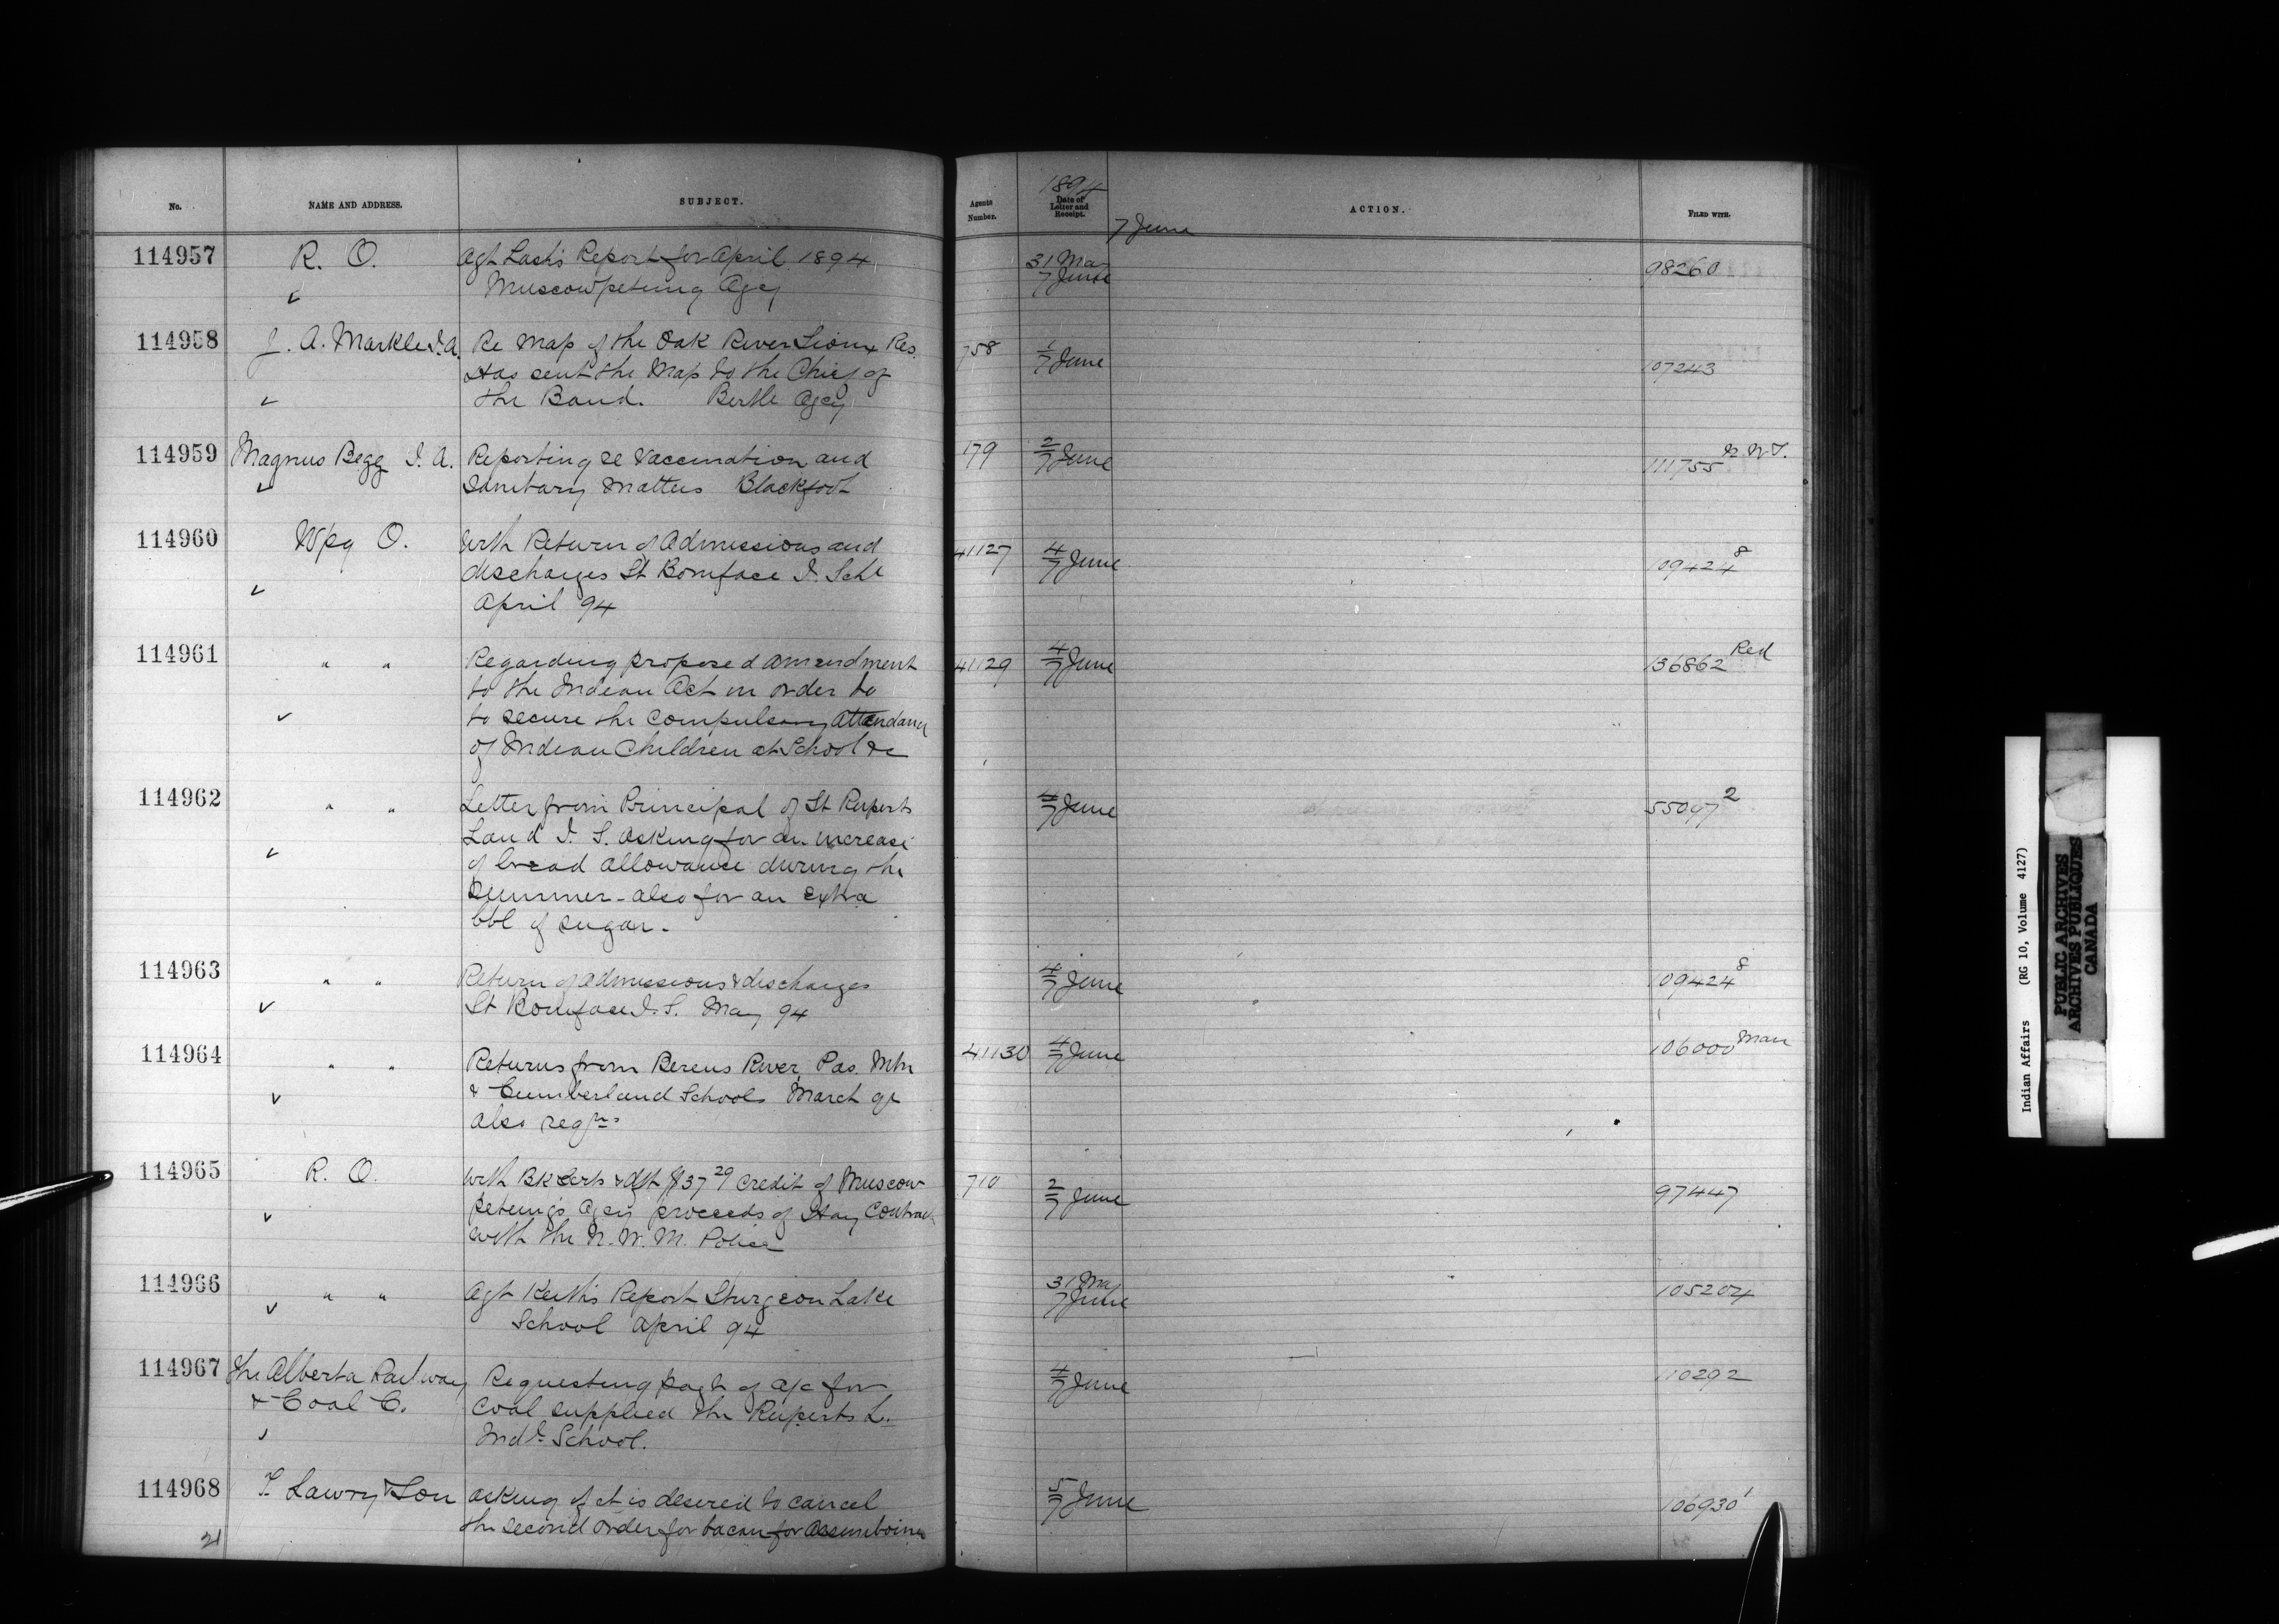 No. NAME AND ADDRESS. SUBJECT. Agents Number. 1894 Date of Letter and Receipt. ACTION. FILED WITH.
7 June
114957 R. O. Agt Lash's Report for April 1894 31 Ma 98260
✓ Muscowpetung Agcy 7 June
114958 J. A. Markle I.A. Re Map of the Oak River Sioux Res. 758 1/7 June 107243
Has sent the Map to the Chief of
✓ the Band. Birtle Agcy
114959 Magnus Begg I. A. Reporting re Vaccination and 179 2/7 June 111755 N.W.T.
✓ Sanitary Matters Blackfoot
114960 Wpg O. With Return of Admissions and 41127 4/7 June 109424 8
discharges St Boniface I. Schl
✓ April 94
114961 " " Regarding proposed amendment 41129 4/7 June 136862 Red
to the Indian Act in order to
✓ to secure the compulsory attendance
of Indian Children at School &c
114962 " " Letter from Principal of St Ruperts 4/7 June 55047 2
Land I. S. asking for an increase
✓ of bread allowance during the
Summer - also for an extra
bbl of sugar.
114963 " " Return of admissions & discharges 4/7 June 109424 8
✓ St Boniface I. S. May 94
114964 " " Returns from Berens River, Pas. Mtn 41130 4/7 June 106000 Man
✓ & Cumberland Schools March qr
also reqns
114965 R. O. With BK certs & dft $37 29 credit of Muscow- 710 2/7 June 97447
✓ petung's Agcy proceeds of Hay Contract
with the N. W. M. Police
114966 " " Agt Keith's Report Sturgeon Lake 31 Ma 105204
✓ School April 94 7 June
114967 The Alberta Railway Requesting payt of a/c for 4/7 June 110292
& Coal C. coal supplied the Ruperts L.
✓ Indl School.
114968 F. Lawry & Son asking if it is desired to cancel 5/7 June 106930 1
21 the second order for bacon for Assiniboine
Indian Affairs (RG 10, Volume 4127)
PUBLIC ARCHIVES
ARCHIVES PUBLIQUES
CANADA